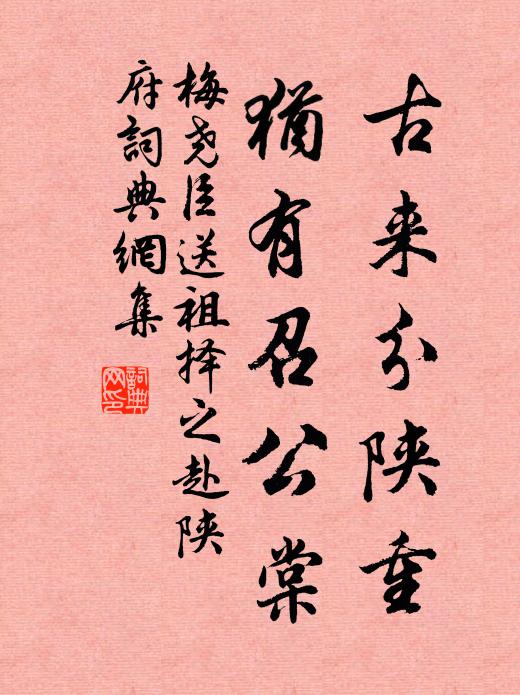 古来分陕重
犹有召公棠
梅尧臣送祖择之赴陕
府詞典網集
詞典网印